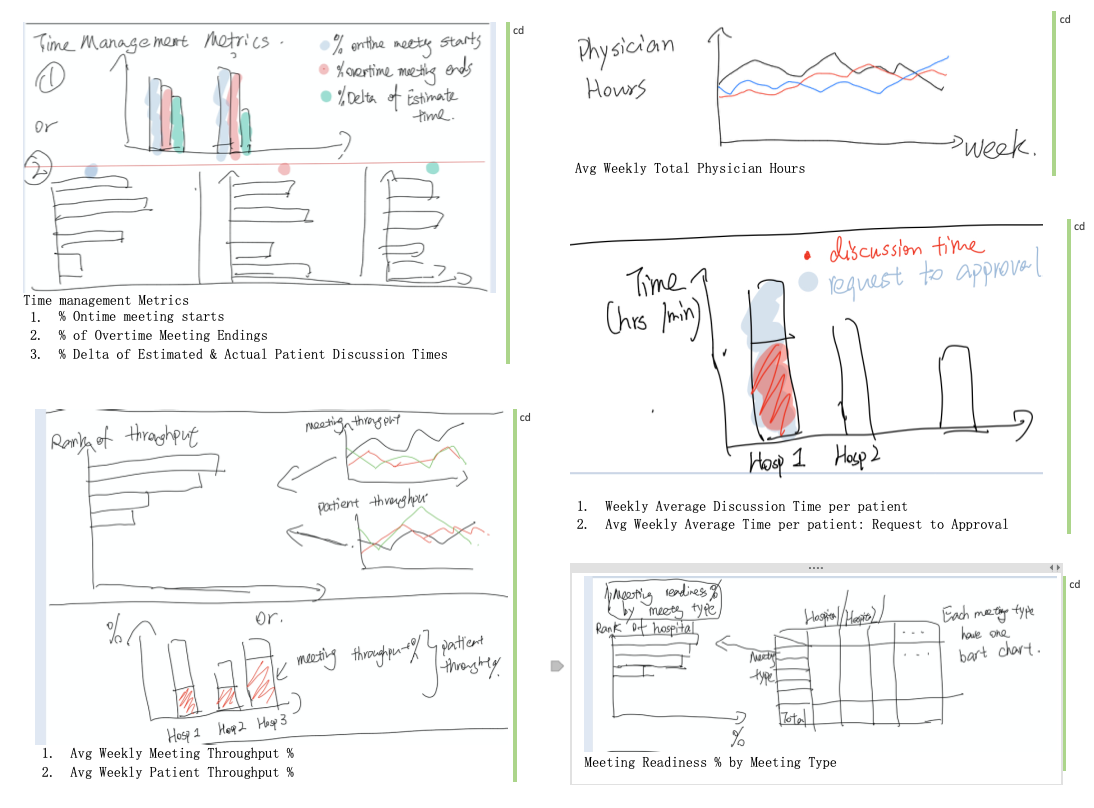 cd
Time Management Metrics.
% ontime meety starts
① 
% overtime meeting ends
% Delta of Estimate
time.
or
②
Time management Metrics
1. % Ontime meeting starts
2. % of Overtime Meeting Endings
3. % Delta of Estimated & Actual Patient Discussion Times
cd
Physician
Hours
week.
Avg Weekly Total Physician Hours
cd
discussion time
request to approval
Time
(hrs /min)
Hosp 1
Hosp 2
1. Weekly Average Discussion Time per patient
2. Avg Weekly Average Time per patient: Request to Approval
cd
Rank of throughput
meeting throughput
patient throughput
or.
%
meeting throughput%
patient
throught%
Hosp 1
Hosp 2
Hosp 3
1. Avg Weekly Meeting Throughput %
2. Avg Weekly Patient Throughput %
cd
Meeting readiness %
by meety type
Rank of hospital
%
Hospital 1
Hospital 2
...
...
Meety
type
Total
Each meeting type
have one
bart chart.
Meeting Readiness % by Meeting Type